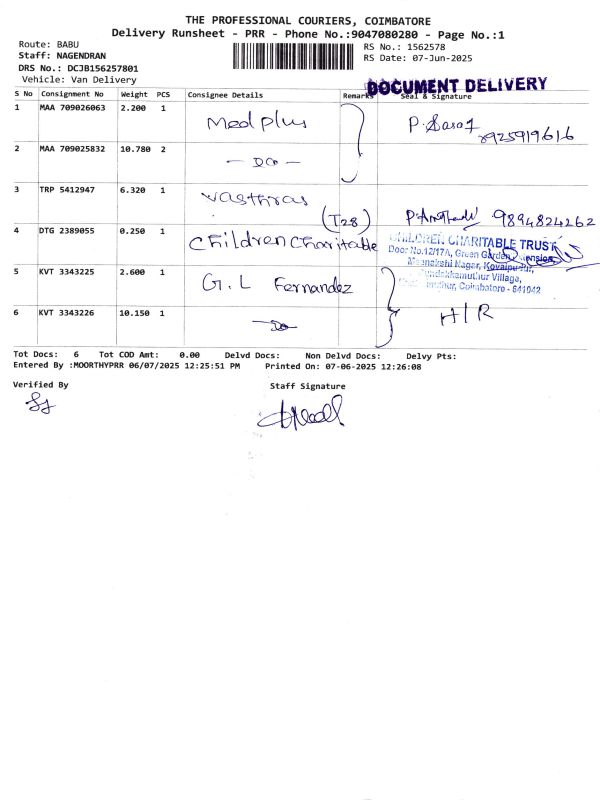 THE PROFESSIONAL COURIERS, COIMBATORE
Delivery Runsheet - PRR - Phone No.:9047080280 - Page No.:1
Route: BABU
RS No.: 1562578
Staff: NAGENDRAN
RS Date: 07-Jun-2025
DRS No.: DCJB156257801
Vehicle: Van Delivery
DOCUMENT DELIVERY
S No Consignment No Weight PCS Consignee Details Remarks Seal & Signature
1 MAA 709026063 2.200 1 Medplus P. 8925919616
2 MAA 709025832 10.780 2 - DO -
3 TRP 5412947 6.320 1 Vasthras (T28) 9894824262
4 DTG 2389055 0.250 1 Children Charitable
CHILDREN CHARITABLE TRUST
Door No.12/17A, Green Garden
Meenakshi Nagar, Kovaipudur,
Village,
Coimbatore - 641042
5 KVT 3343225 2.600 1 G.L Fernandez
6 KVT 3343226 10.150 1 Do H/R
Tot Docs: 6 Tot COD Amt: 0.00 Delvd Docs: Non Delvd Docs: Delvy Pts:
Entered By :MOORTHYPRR 06/07/2025 12:25:51 PM Printed On: 07-06-2025 12:26:08
Verified By Staff Signature